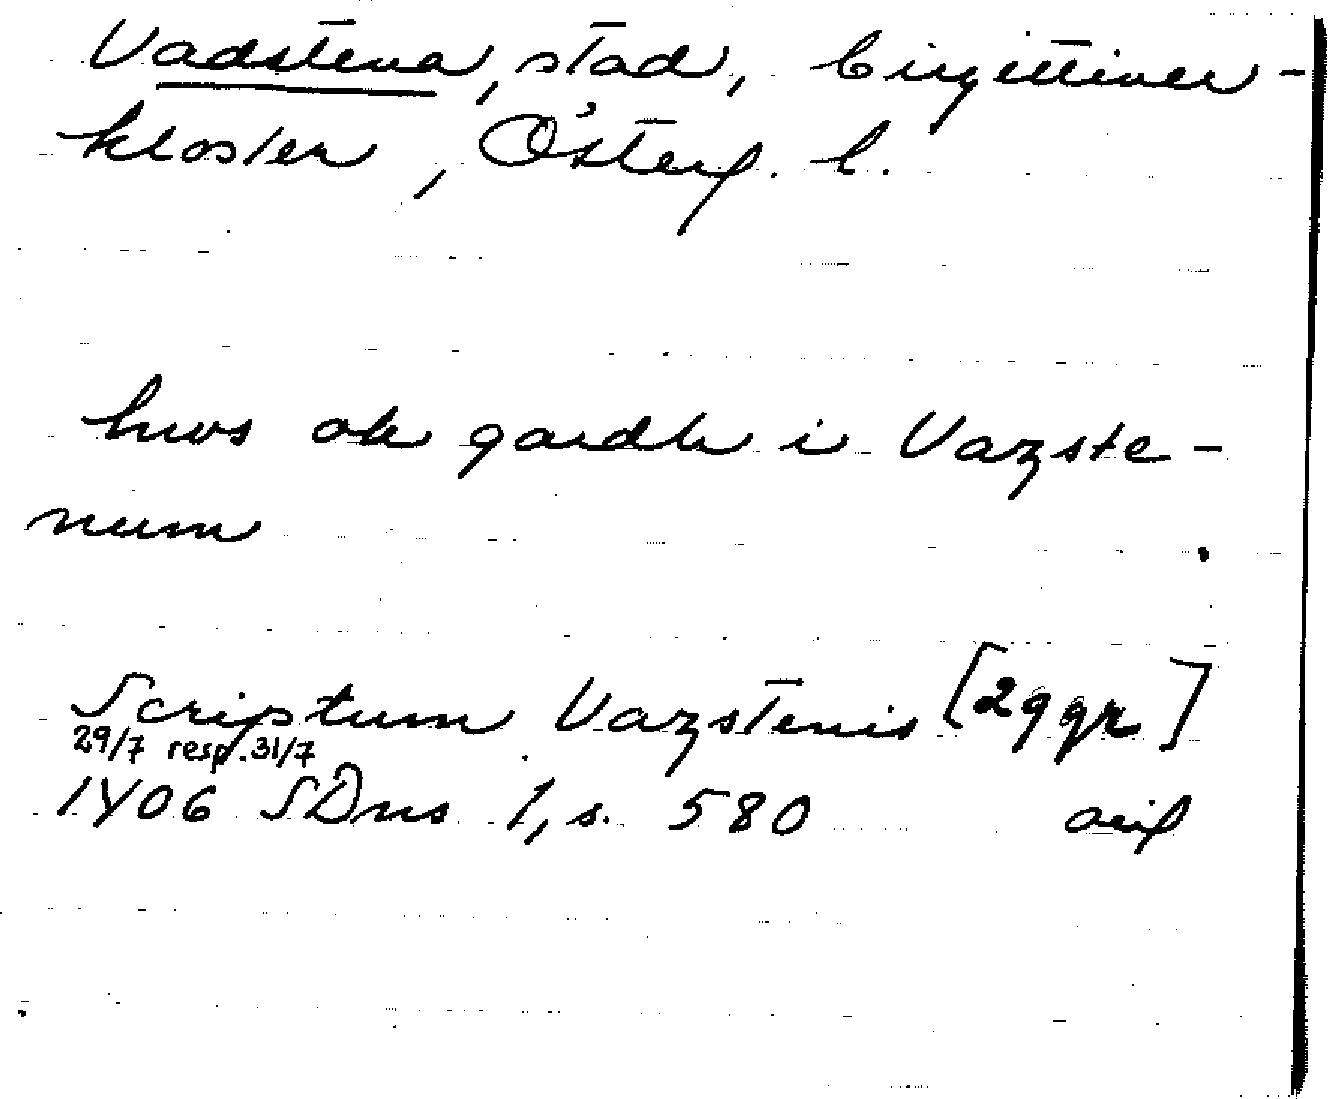 Vadstena, stad, birgittiner-
kloster, Österg. l.
hws ok gardh i Vazste-
num
Scriptum Vazstenis [2 ggr]
29/7 resp. 31/7
1406 SDns 1, s. 580 avsk